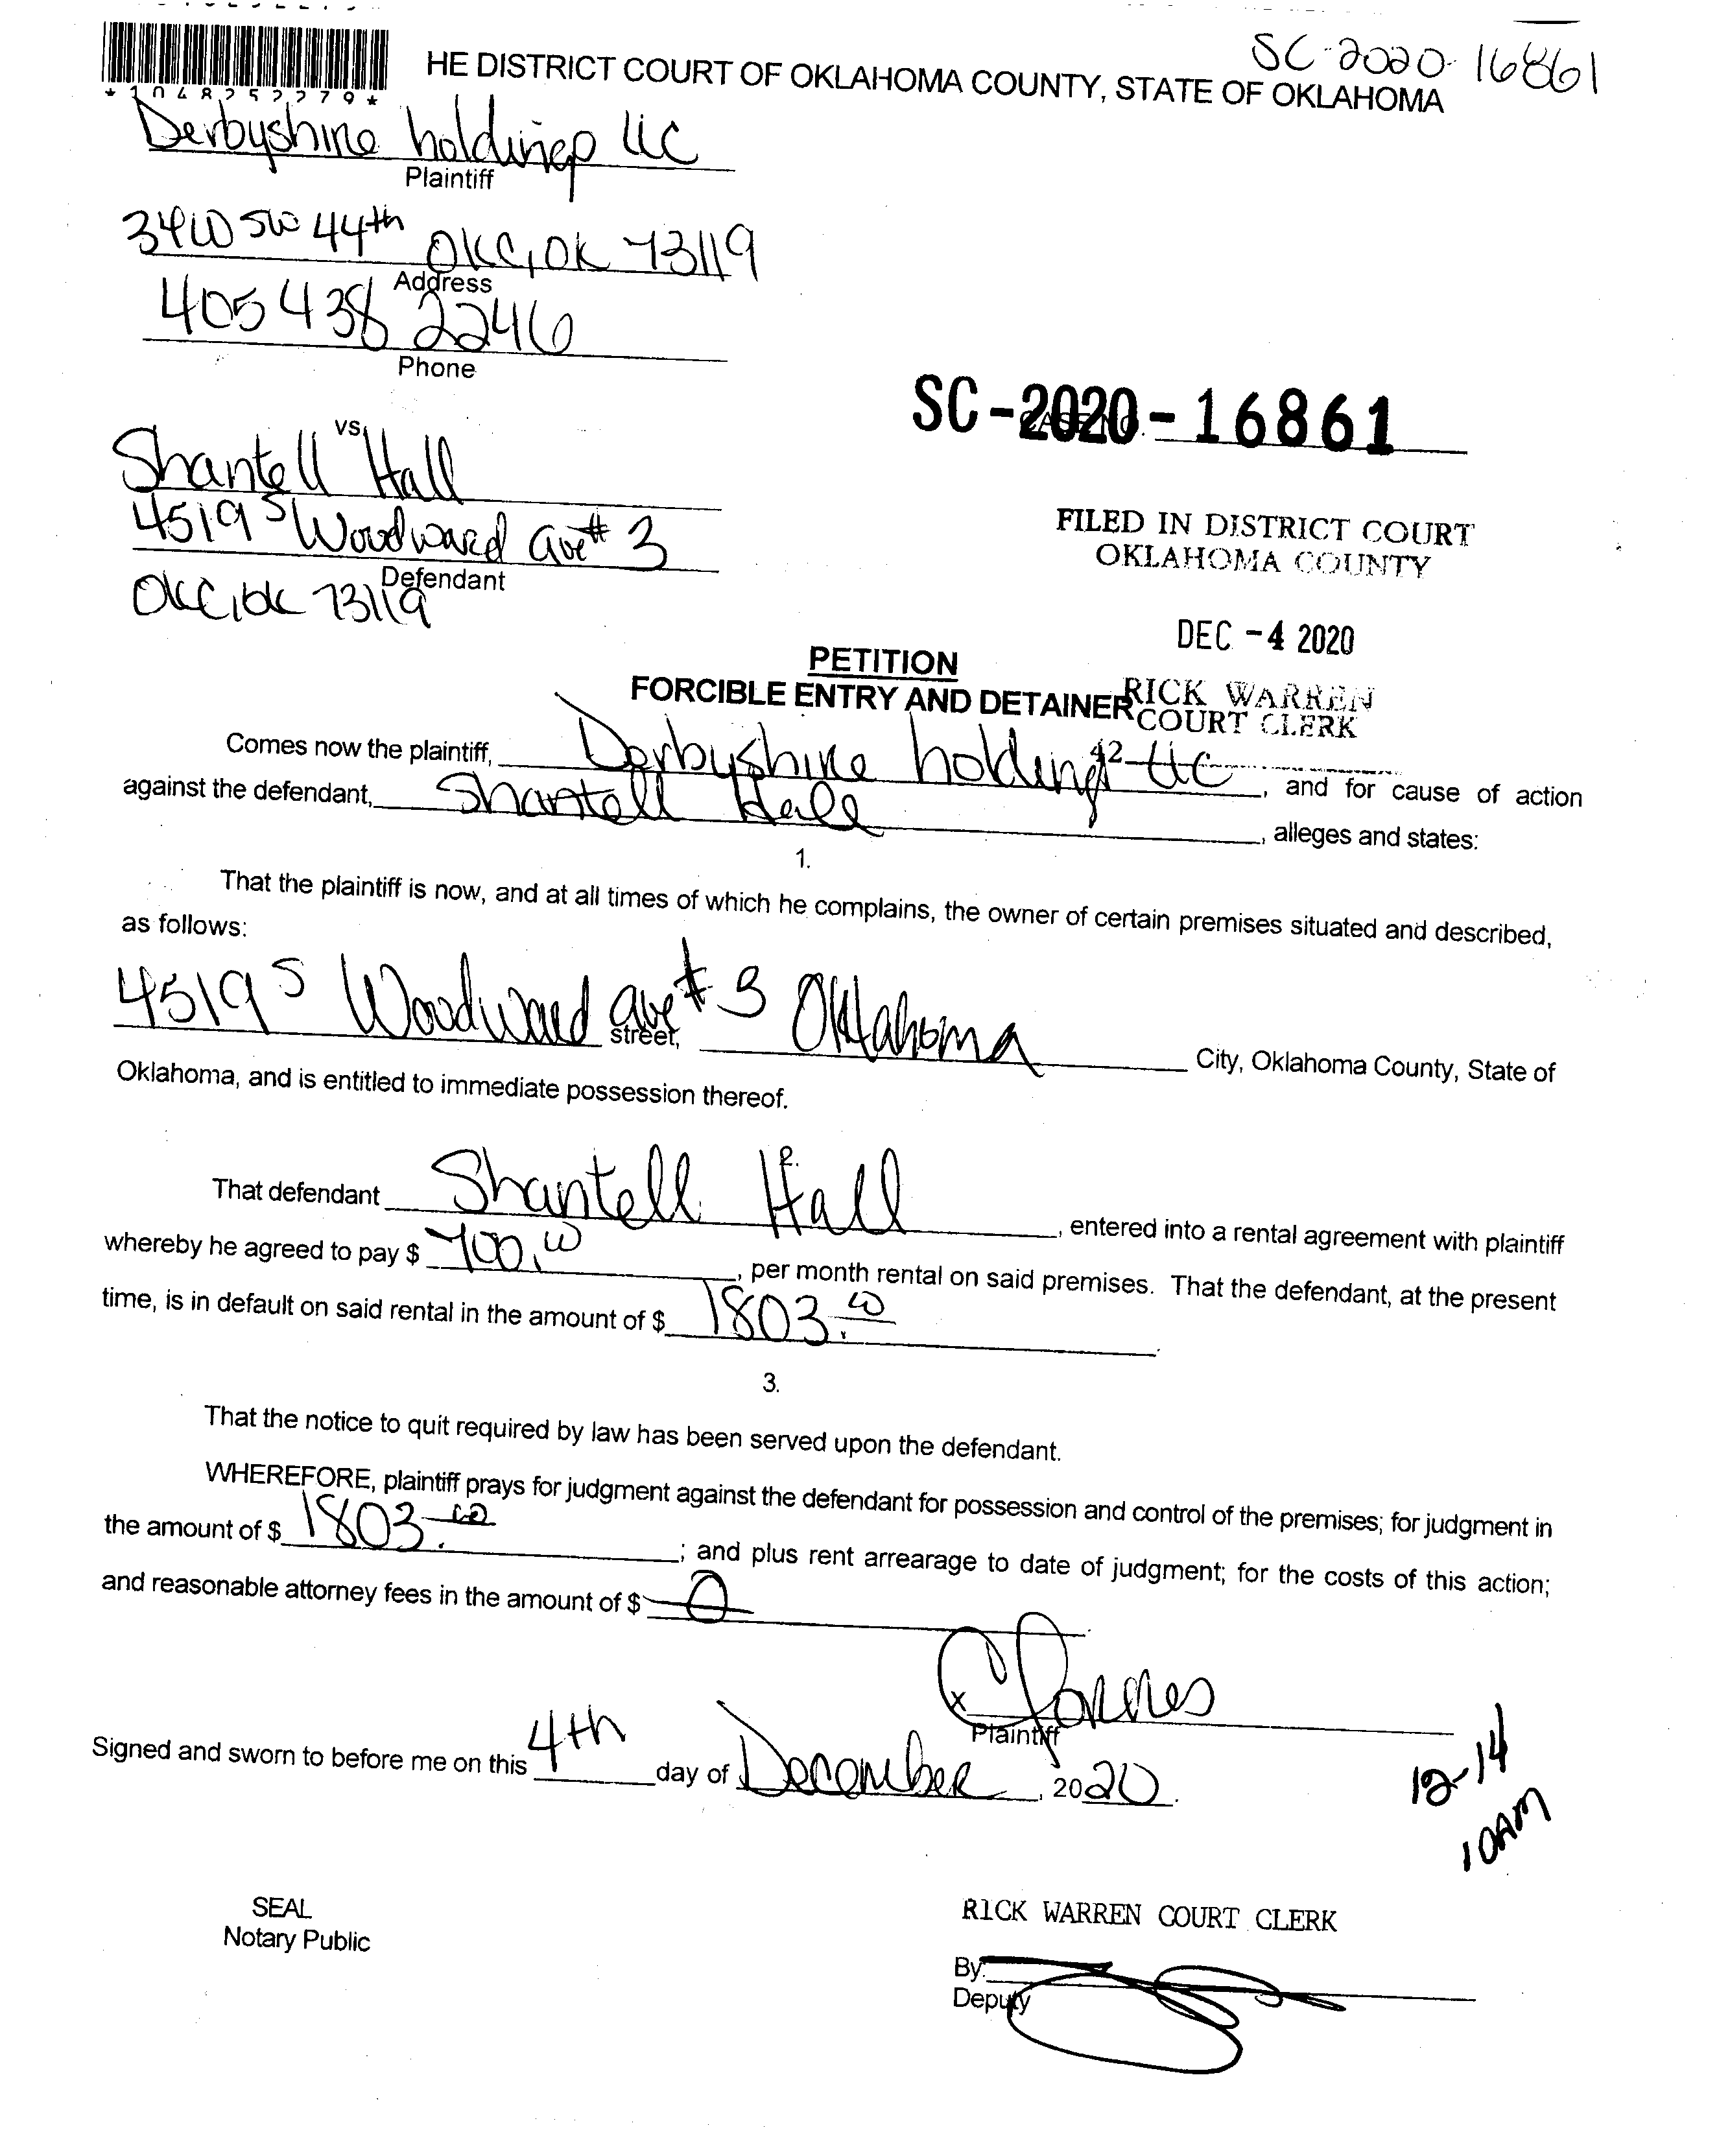 SC-2020-16861
*1048252279*
HE DISTRICT COURT OF OKLAHOMA COUNTY, STATE OF OKLAHOMA
Derbyshire holdings LLC
Plaintiff
SW 44th OKC, OK 73119
Address
405 438 2246
Phone
vs.
SC-2020-16861
CASE NO.
Shantell Hall
4519 S Woodward ave # 3
Defendant
OKC, OK 73119
FILED IN DISTRICT COURT
OKLAHOMA COUNTY
DEC -4 2020
RICK WARREN
COURT CLERK
42
PETITION
FORCIBLE ENTRY AND DETAINER
Comes now the plaintiff, Derbyshire holdings LLC
against the defendant, Shantell Hall, and for cause of action
alleges and states:
1.
That the plaintiff is now, and at all times of which he complains, the owner of certain premises situated and described,
as follows:
4519 S Woodward ave # 3 street, Oklahoma City, Oklahoma County, State of
Oklahoma, and is entitled to immediate possession thereof.
2.
That defendant Shantell Hall, entered into a rental agreement with plaintiff
whereby he agreed to pay $ 700.00, per month rental on said premises. That the defendant, at the present
time, is in default on said rental in the amount of $ 1803.00.
3.
That the notice to quit required by law has been served upon the defendant.
WHEREFORE, plaintiff prays for judgment against the defendant for possession and control of the premises; for judgment in
the amount of $ 1803.00; and plus rent arrearage to date of judgment; for the costs of this action;
and reasonable attorney fees in the amount of $ 0.
x
Plaintiff
Signed and sworn to before me on this 4th day of December, 2020.
12-14
10AM
SEAL
Notary Public
RICK WARREN COURT CLERK
By:
Deputy